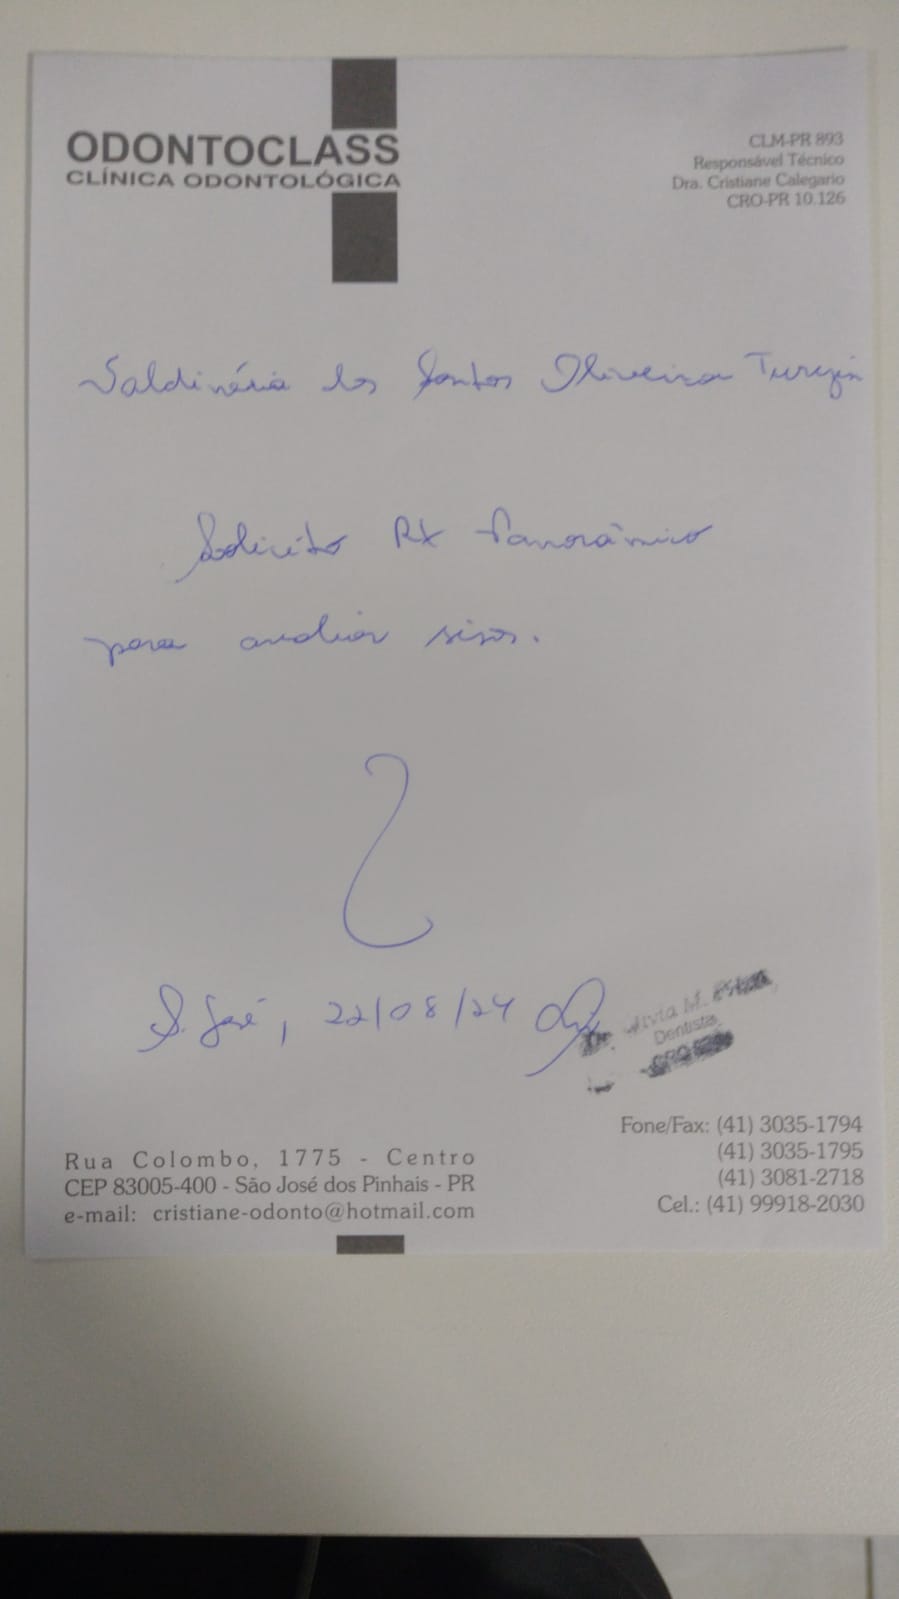 ODONTOCLASS
CLÍNICA ODONTOLÓGICA
CLM-PR 893
Responsável Técnico
Dra. Cristiane Calegario
CRO-PR 10.126
dos Santos Oliveira
Solicito RX Panorâmico
para avaliar sisos.
S. José, 22/08/24
M.
Dentista
CRO
Rua Colombo, 1775 - Centro
CEP 83005-400 - São José dos Pinhais - PR
e-mail: cristiane-odonto@hotmail.com
Fone/Fax: (41) 3035-1794
(41) 3035-1795
(41) 3081-2718
Cel.: (41) 99918-2030